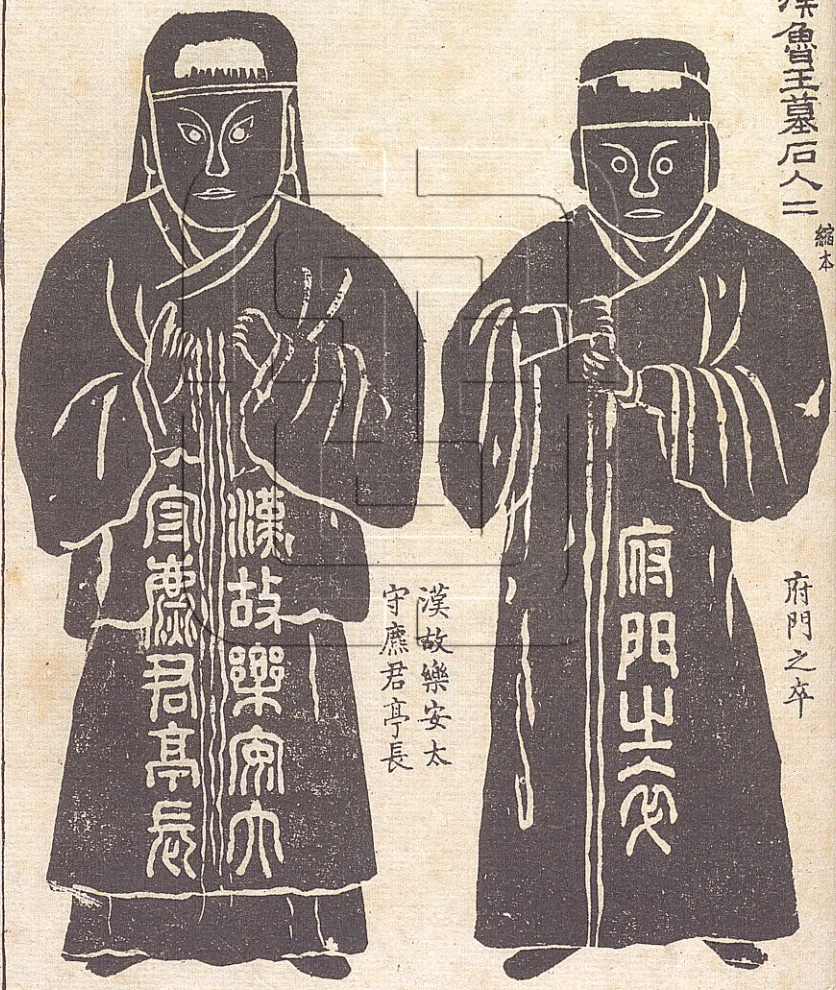 漢魯王墓石人二
縮本
府門之卒
府門之卒
漢故樂安太
守麃君亭長
漢故樂安太
守麃君亭長